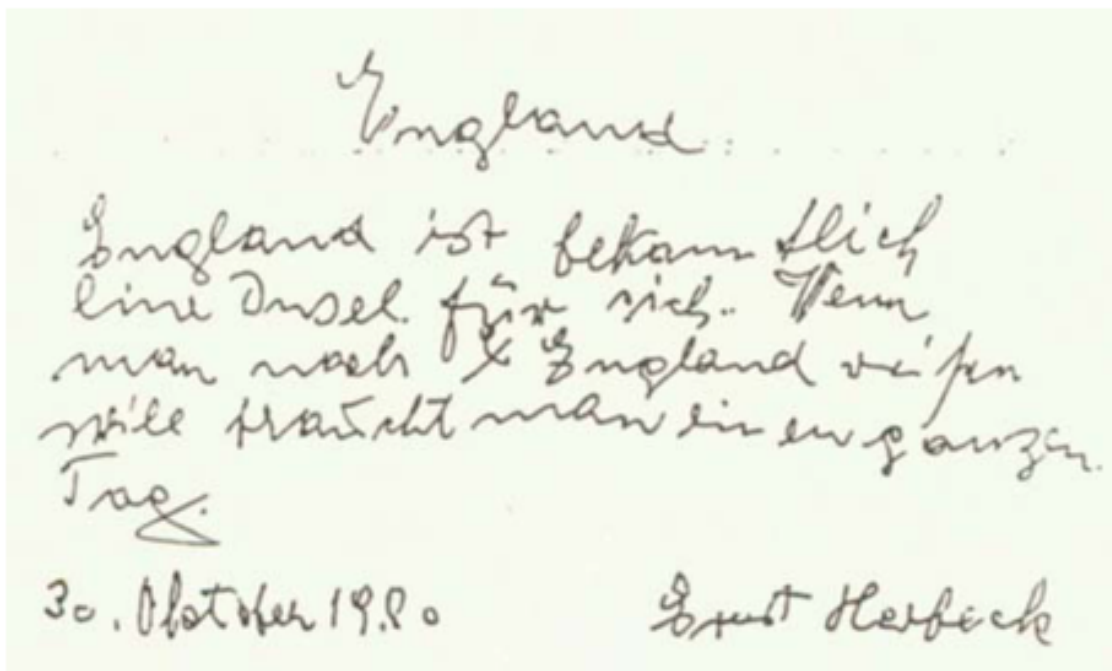 England
England ist bekanntlich
eine Insel. für sich. Wenn
man nach X England reisen
will braucht man einen ganzen
Tag.
30. Oktober 1980
Ernst Herbeck